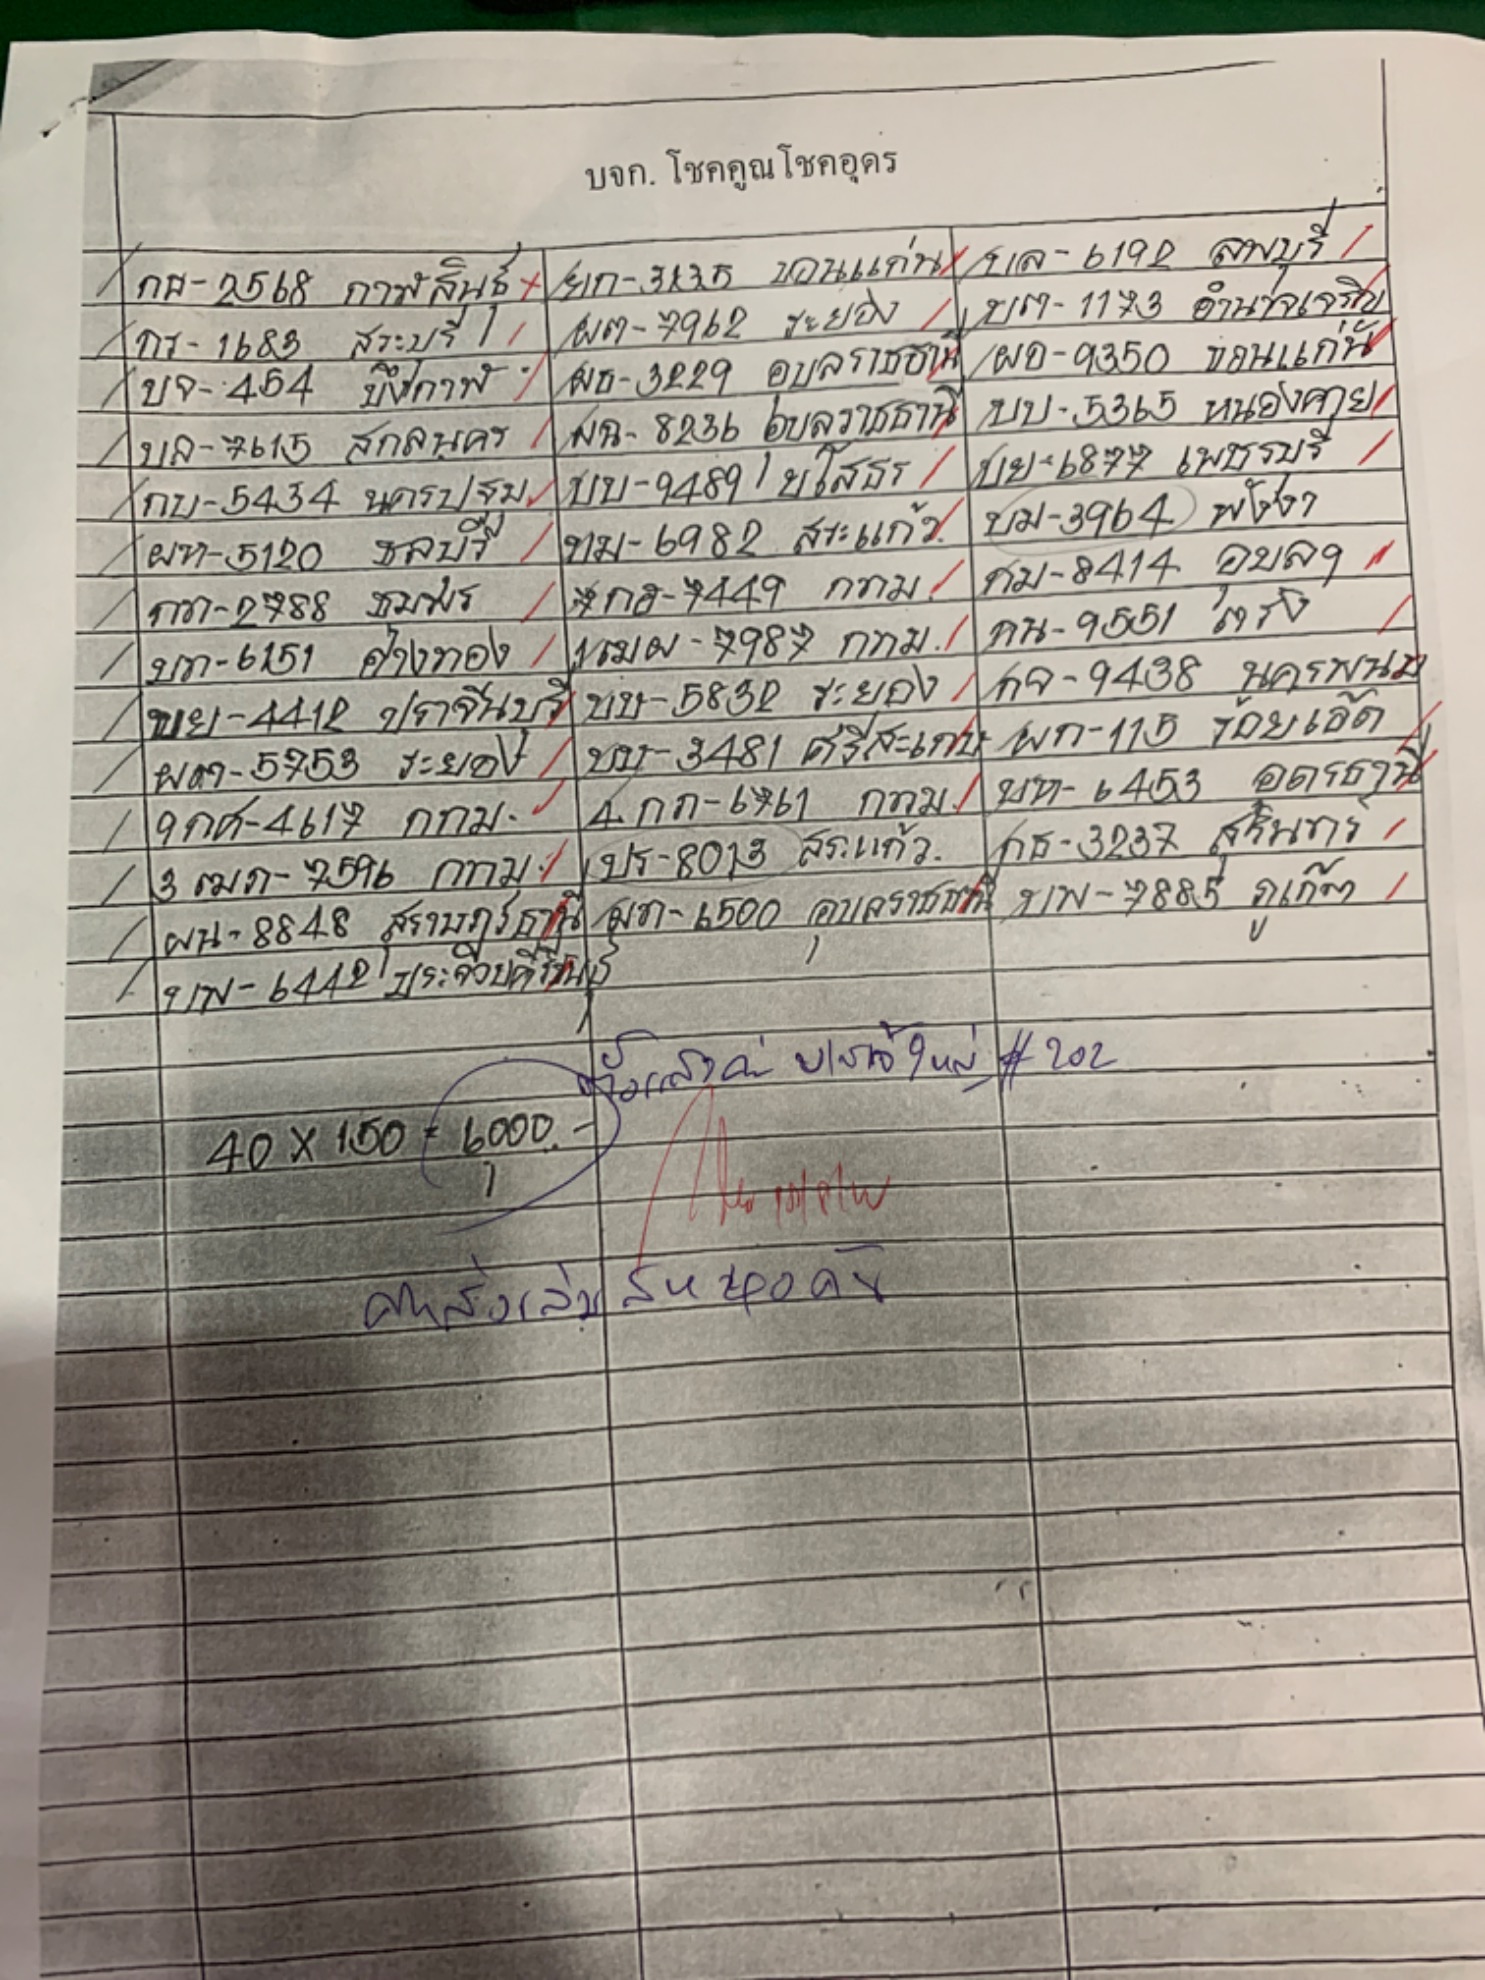 บจก. โชคคูณโชคอุดร
กส-2568 กาฬสินธุ์ ยก-3235 ขอนแก่น บล-6192 ลพบุรี
กร-1683 สระบุรี ผต-7962 ระยอง บต-1173 อำนาจเจริญ
บจ-454 บึงกาฬ ผธ-3229 อุบลราชธานี ผอ-9350 ขอนแก่น
บล-7615 สกลนคร ผฉ-8236 อุบลราชธานี บบ-5365 หนองคาย
กบ-5434 นครปฐม บบ-9489 ยโสธร บย-6877 เพชรบุรี
ผท-5120 ชลบุรี กม-6982 สระแก้ว บม-3964 พังงา
กก-2788 ชุมพร 7กอ-7449 กทม. กม-8414 อุบลฯ
บก-6151 อ่างทอง 1ฒผ-7987 กทม. กน-9551 ตรัง
ขย-4412 ปราจีนบุรี บษ-5832 ระยอง กจ-9438 นครพนม
ผต-5753 ระยอง บบ-3481 ศรีสะเกษ ผก-115 ร้อยเอ็ด
9กศ-4617 กทม. 4กภ-6761 กทม. บท-6453 อุดรธานี
3ฒภ-7596 กทม. บร-8013 สระแก้ว. กธ-3237 สุรินทร์
ผน-8848 สุราษฎร์ธานี ผก-6500 อุบลราชธานี บพ-7885 ภูเก็ต
บพ-6442 ประจวบคีรีขันธ์
#202
40 X 150 = 6000.-